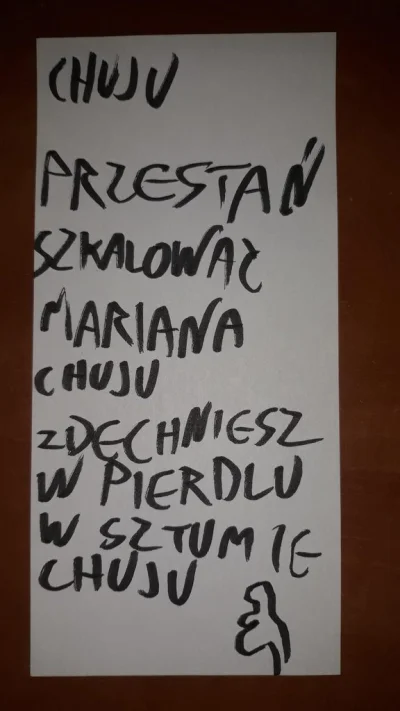 CHUJU
PRZESTAŃ
SZKALOWAĆ
MARIANA
CHUJU
ZDECHNIESZ
W PIERDLU
W SZTUMIE
CHUJU